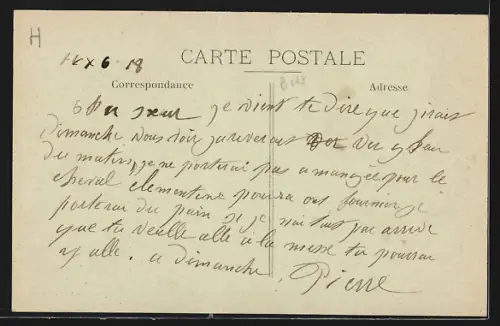 H
14 x 6 18
CARTE POSTALE
Correspondance
Adresse
je vient te dire que j'irais
dimanche vous voir j'ariverais ver 9 heur
du matin, je ne porterai pas a mangée pour le
cheval clementine poura ont fournir je
porterai du pain si je suit pas arrivé
que tu veulle allé a la messe tu pourra
y allé. a dimanche. Pierre